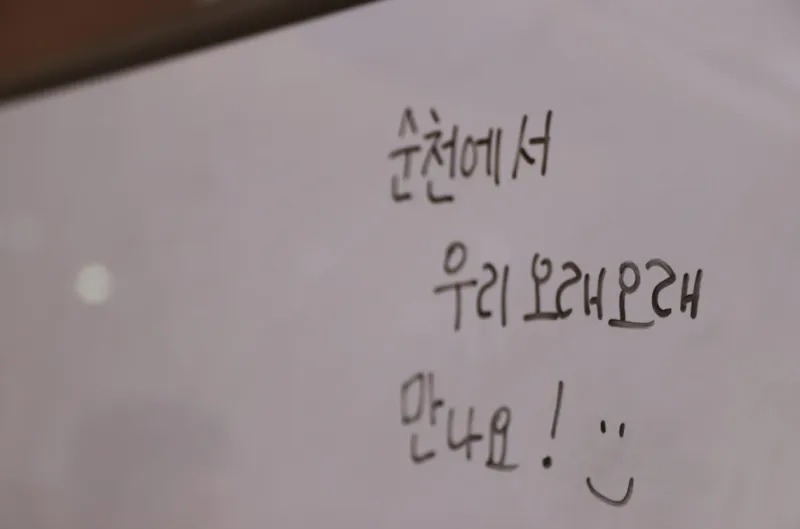 순천에서
우리 오래오래
만나요! :)